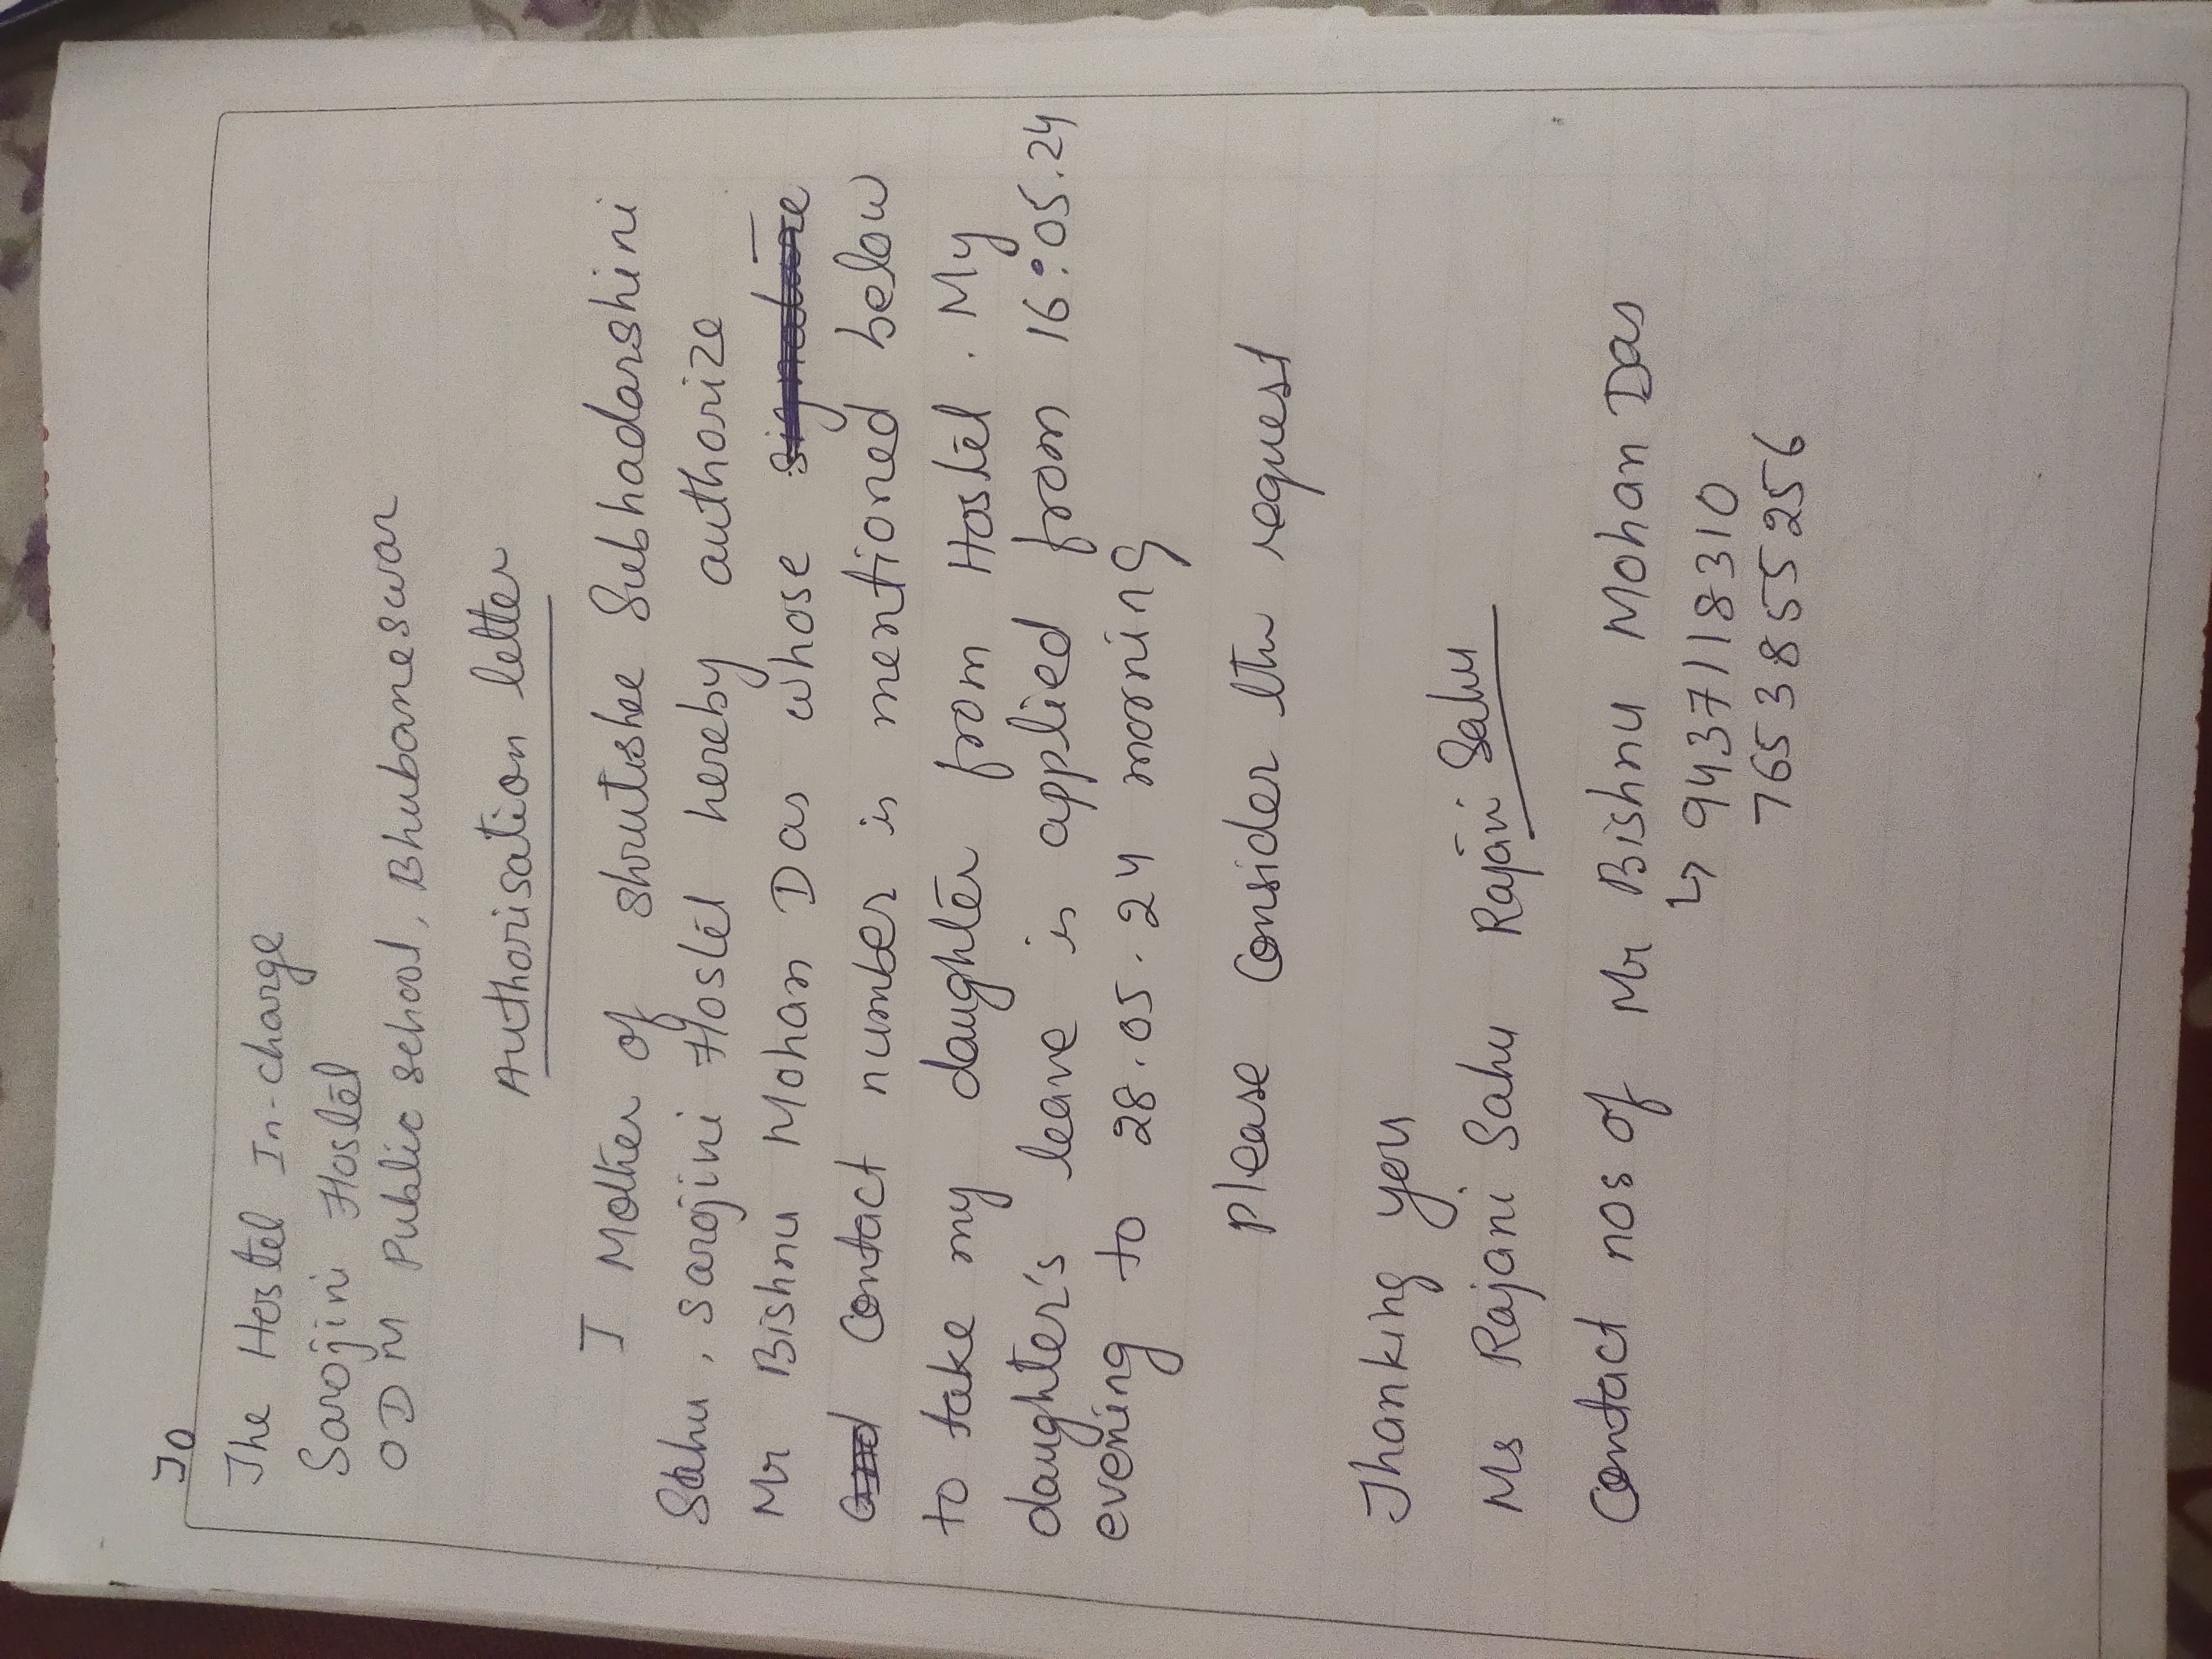 To
The Hostel In-charge
Sarojini Hostel
ODM Public School, Bhubaneswar
Authorisation letter
I Mother of Shrutishee Subhadarshini
Sahu, Sarojini Hostel hereby authorize
Mr Bishnu Mohan Das whose signature
and Contact number is mentioned below
to take my daughter from Hostel. My
daughter's leave is applied from 16:05.24
evening to 28.05.24 morning
Please Consider the request
Thanking you
Ms Rajani Sahu Rajani Sahu
Contact nos of Mr Bishnu Mohan Das
↳ 9437118310
7653855256